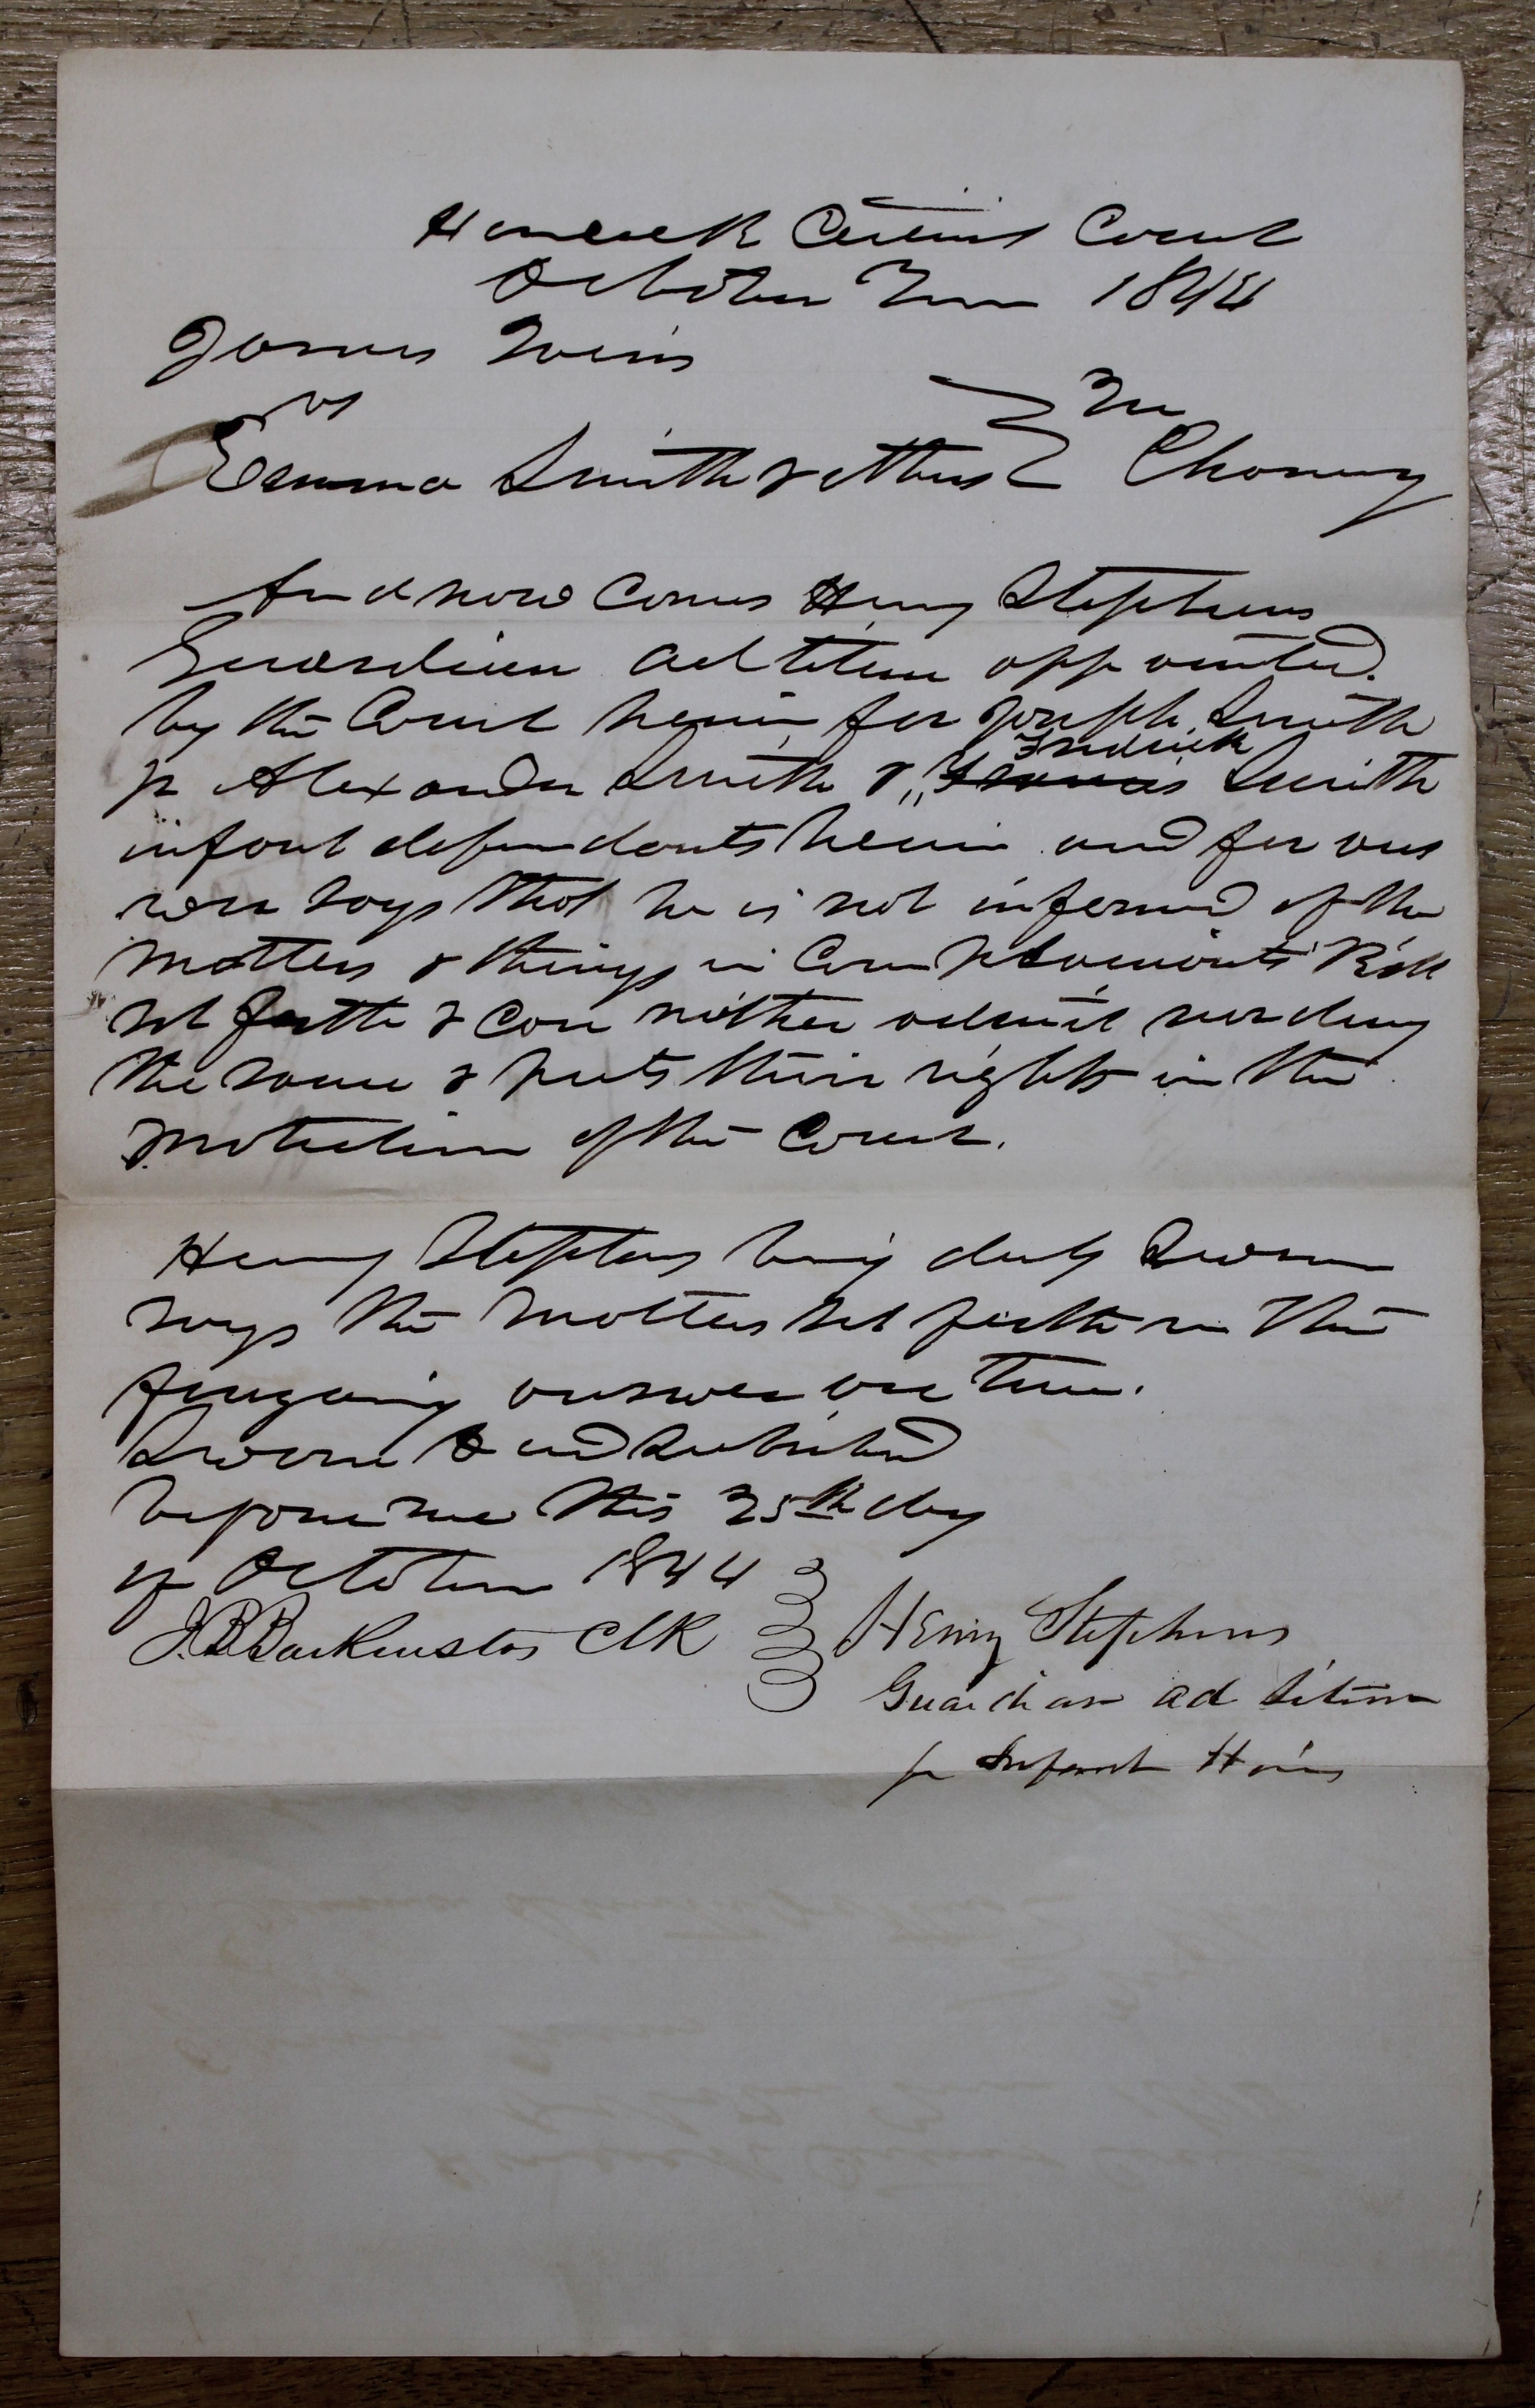 Hancock Circuit Court
October Term 1844
James Ivins
vs
In
Emma Smith & others Chancery
And now comes Henry Stephens
Guardian ad litem appointed
by the Court herein for Joseph Smith
jr Alexander Smith & Fredrick Smith
infant defendants herein and for ans
wer says that he is not informed of the
matters & things in Complainants Bill
set forth & can neither admit nor deny
the same & puts their rights in the
protection of the Court.
Henry Stephens being duly sworn
says the matters set forth in the
foregoing answer are true.
Sworn to and subscribed
before me this 25th day
of October 1844
J. B. Backenstos Clk
Henry Stephens
Guardian ad litem
for Infant Heirs